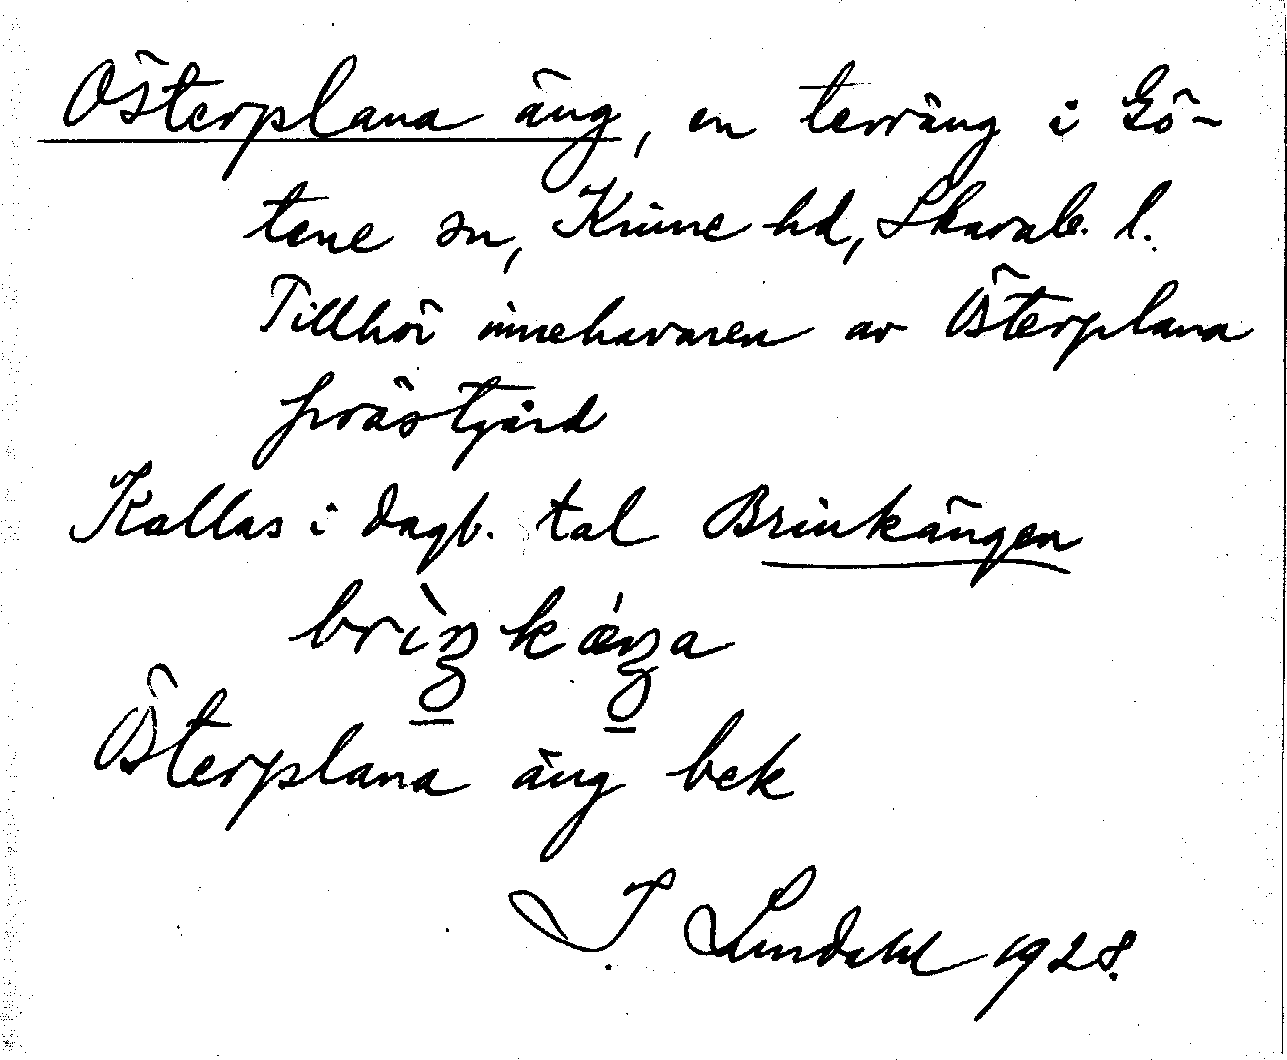 Österplana äng, en terräng i Gö-
tene sn, Kinne hd, Skarab. l.
Tillhör innehavaren av Österplana
prästgård
Kallas i dagl. tal Brinkängen
brìŋkǽŋa
Österplana äng bek
I. Lindahl 1928.